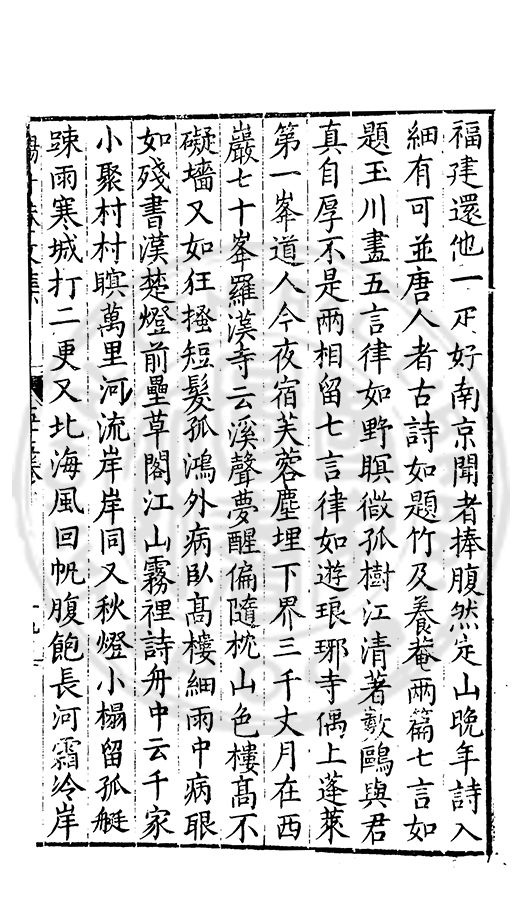 福建還他一疋好南京聞者捧腹然定山晚年詩入
細有可並唐人者古詩如題竹及養菴兩篇七言如
題玉川畫五言律如野暝微孤樹江清著數鷗與君
真自厚不是兩相留七言律如遊琅琊寺偶上蓬萊
第一峯道人今夜宿芙蓉塵埋下界三千丈月在西
巖七十峯羅漢寺云溪聲夢醒偏隨枕山色樓高不
礙墻又如狂搔短髮孤鴻外病臥高樓細雨中病眼
如殘書漢楚燈前壘草閣江山霧裡詩舟中云千家
小聚村村暝萬里河流岸岸同又秋燈小榻留孤艇
踈雨寒城打二更又北海風回帆腹飽長河霜冷岸